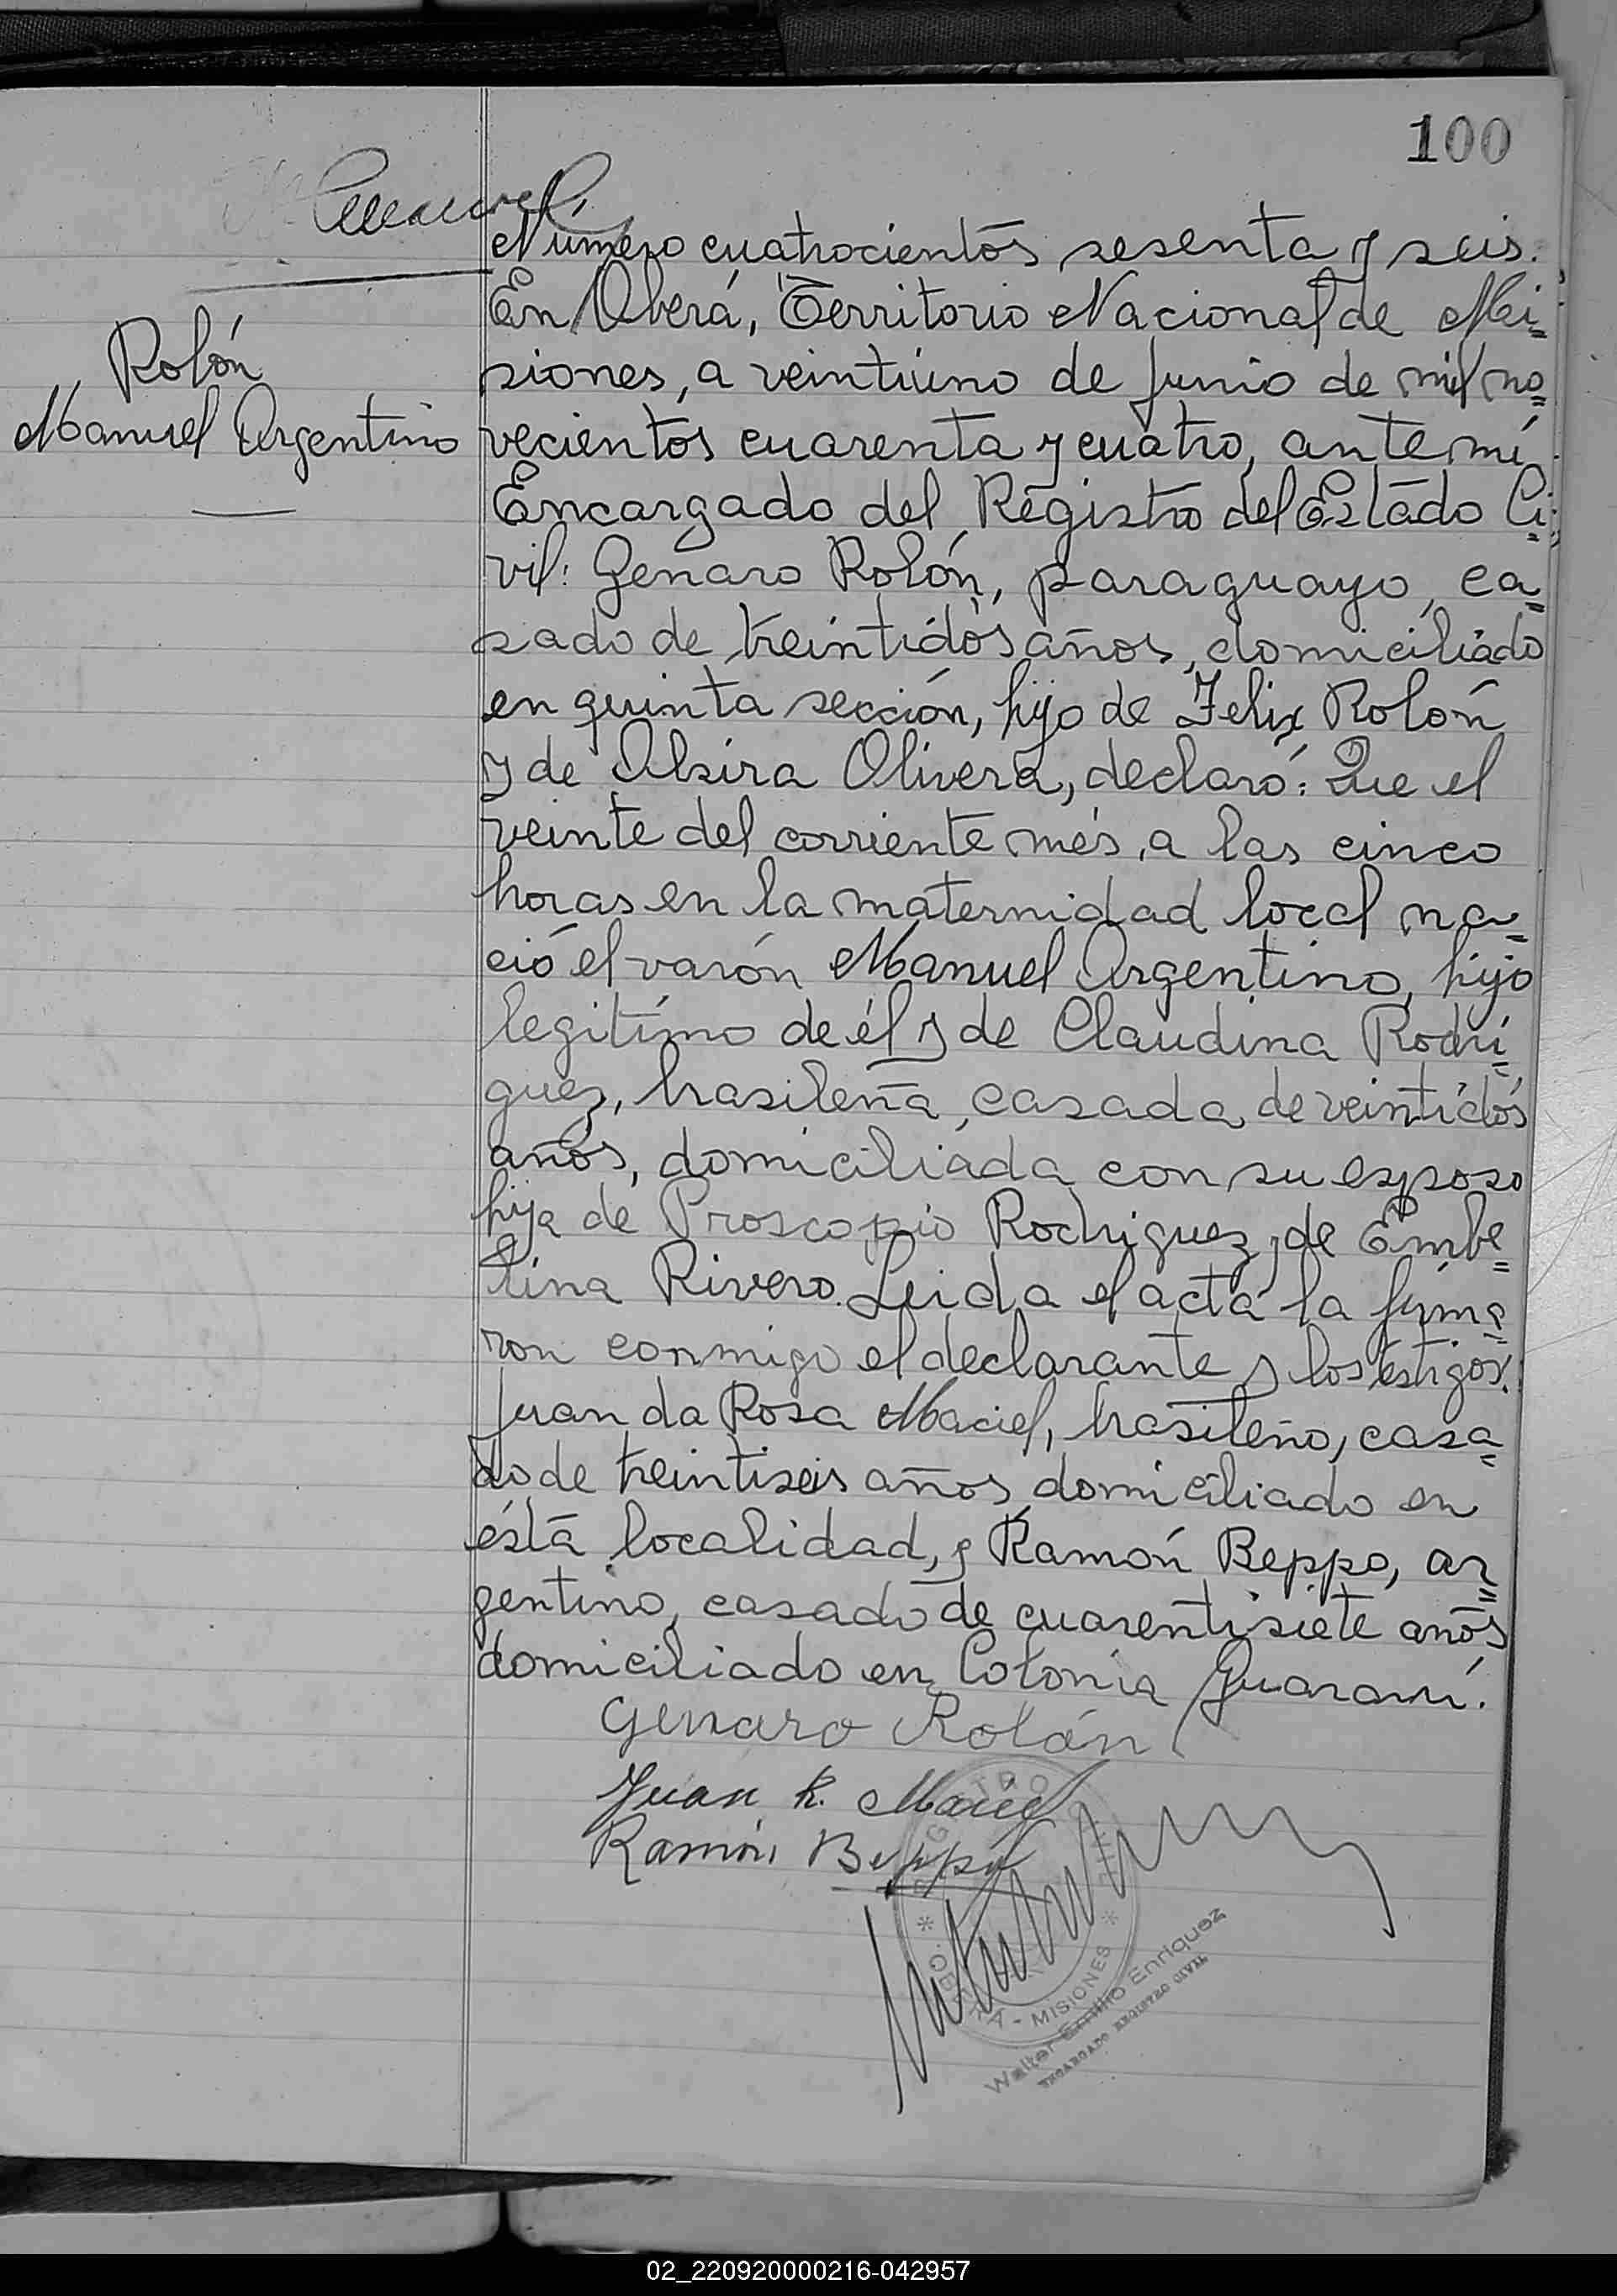 100
Rolón
Manuel Argentino
Número cuatrocientos sesenta y seis.
En Oberá, Territorio Nacional de Mi=
siones, a veintiuno de junio de mil no=
vecientos cuarenta y cuatro, ante mí
Encargado del Registro del Estado Ci=
vil: Genaro Rolón, paraguayo, ca=
sado de treintidós años, domiciliado
en quinta sección, hijo de Felix Rolón
y de Alsira Olivera, declaró: Que el
veinte del corriente més, a las cinco
horas en la maternidad local na=
ció el varón Manuel Argentino, hijo
legitímo de él y de Claudina Rodrí=
guez, brasileña, casada, de veintidós
años, domiciliada con su esposo
hija de Proscopio Rodriguez y de Embe=
lina Rivero. Leida el acta la firma=
ron conmigo el declarante y los testigos:
Juan da Rosa Maciel, brasileño, casa=
do de treintiseis años domiciliado en
ésta localidad, y Ramón Beppo, ar=
gentino, casado de cuarentisiete años
domiciliado en Colonia Guaraní.
Genaro Rolón
Juan R. Maciel
Ramón Beppo
REGISTRO CIVIL
* OBERA - MISIONES *
Walter Emilio Enriquez
ENCARGADO REGISTRO CIVIL
02_220920000216-042957